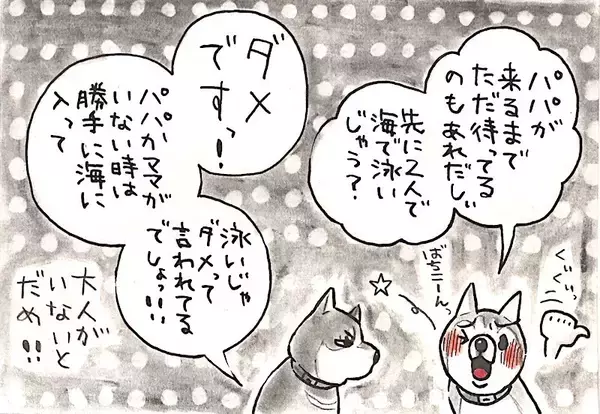 パパが
来るまで
ただ待ってる
のもあれだし
先に2人で
海で泳い
じゃう?
ばちこーんっ
ぐいぐいっ
ダメ
ですっ!
パパかママが
いない時は
勝手に海に
入って
泳いじゃ
ダメって
言われてる
でしょ!!!
大人が
いないと
だめ!!